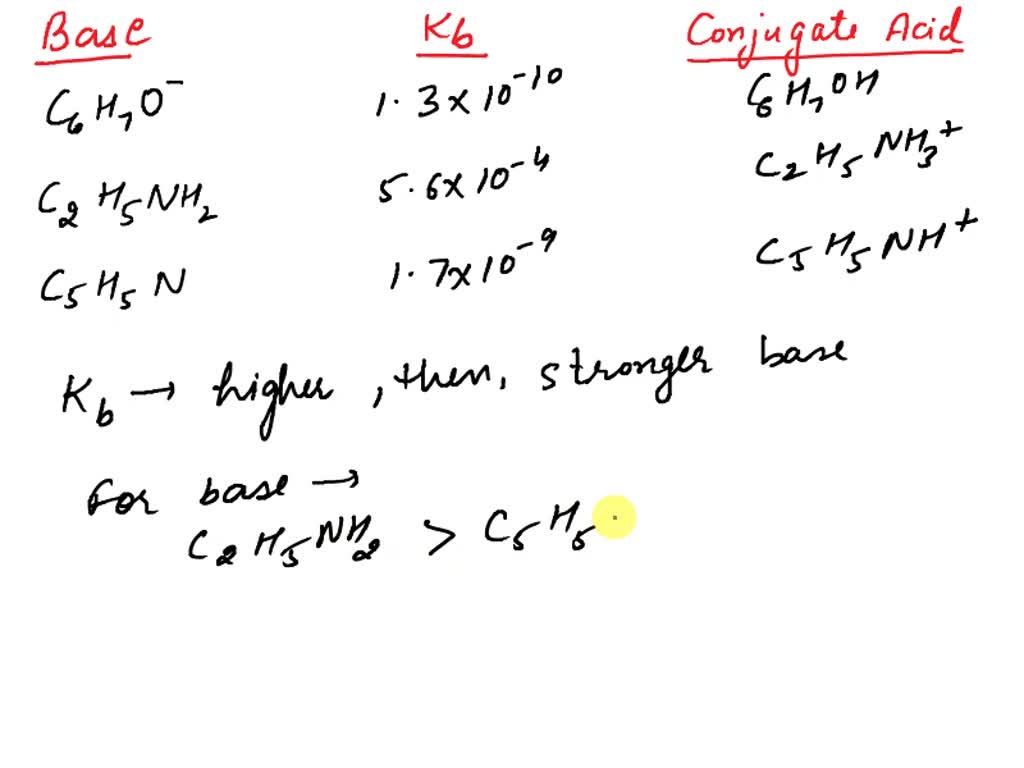 Base Kb Conjugate Acid
C₆H₇O⁻ 1.3x10⁻¹⁰ C₆H₇OH
C₂H₅NH₂ 5.6x10⁻⁴ C₂H₅NH₃⁺
C₅H₅N 1.7x10⁻⁹ C₅H₅NH⁺
Kb → higher, then, stronger base
For base →
C₂H₅NH₂ > C₅H₅